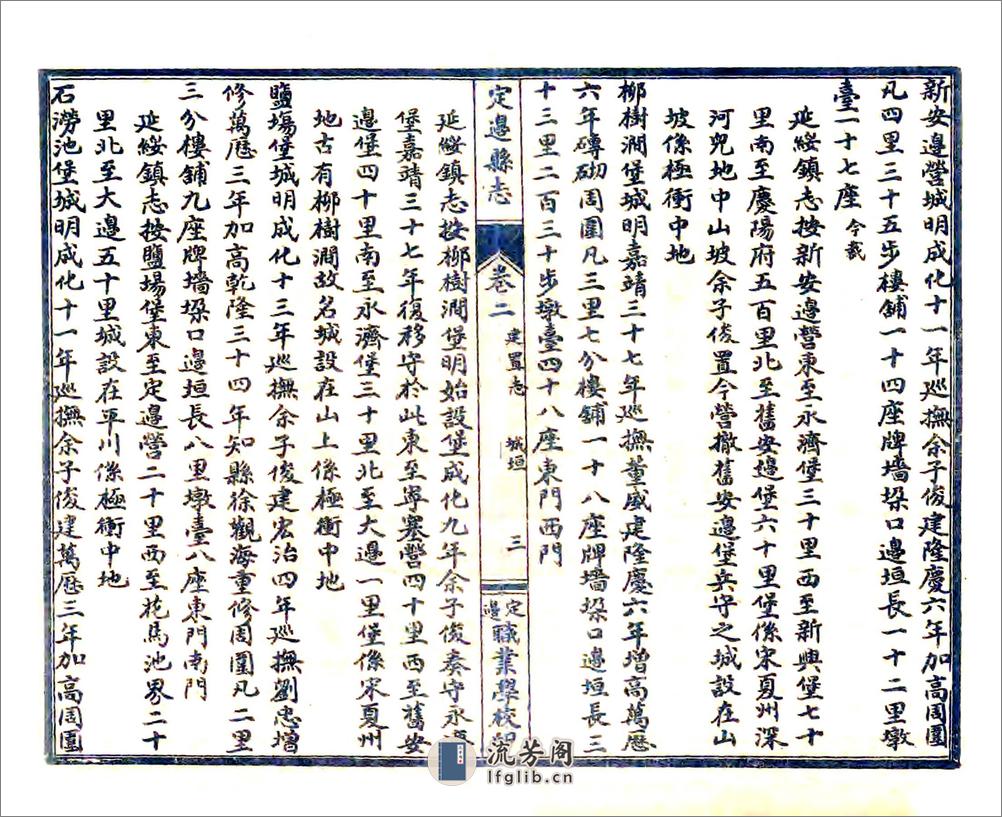 新安邊營城明成化十一年巡撫余子俊建隆慶六年加高周圍
凡四里三十五步樓鋪一十四座牌墻垛口邊垣長一十二里墩
臺一十七座今裁
延綏鎮志按新安邊營東至永濟堡三十里西至新興堡七十
里南至慶陽府五百里北至舊安邊堡六十里堡係宋夏州深
河兒地中山坡余子俊置今營撤舊安邊堡兵守之城設在山
坡係極衝中地
柳樹澗堡城明嘉靖三十七年巡撫董威建隆慶六年增高萬曆
六年磚砌周圍凡三里七分樓鋪一十八座牌墻垛口邊垣長三
十三里二百三十步墩臺四十八座東門西門
定邊縣志
卷二
建置志
城垣
三
定邊職業學校印
延綏鎮志按柳樹澗堡明始設堡成化九年余子俊奏守永濟
堡嘉靖三十七年復移守於此東至寧塞營四十里西至舊安
邊堡四十里南至永濟堡三十里北至大邊一里堡係宋夏州
地古有柳樹澗故名城設在山上係極衝中地
鹽塲堡城明成化十三年巡撫余子俊建宏治四年巡撫劉忠增
修萬曆三年加高乾隆三十四年知縣徐觀海重修周圍凡二里
三分樓鋪九座牌墻垛口邊垣長八里墩臺八座東門南門
延綏鎮志按鹽場堡東至定邊營二十里西至花馬池界二十
里北至大邊五十里城設在平川係極衝中地
石澇池堡城明成化十一年巡撫余子俊建萬曆三年加高周圍
流芳阁
lfglib.cn